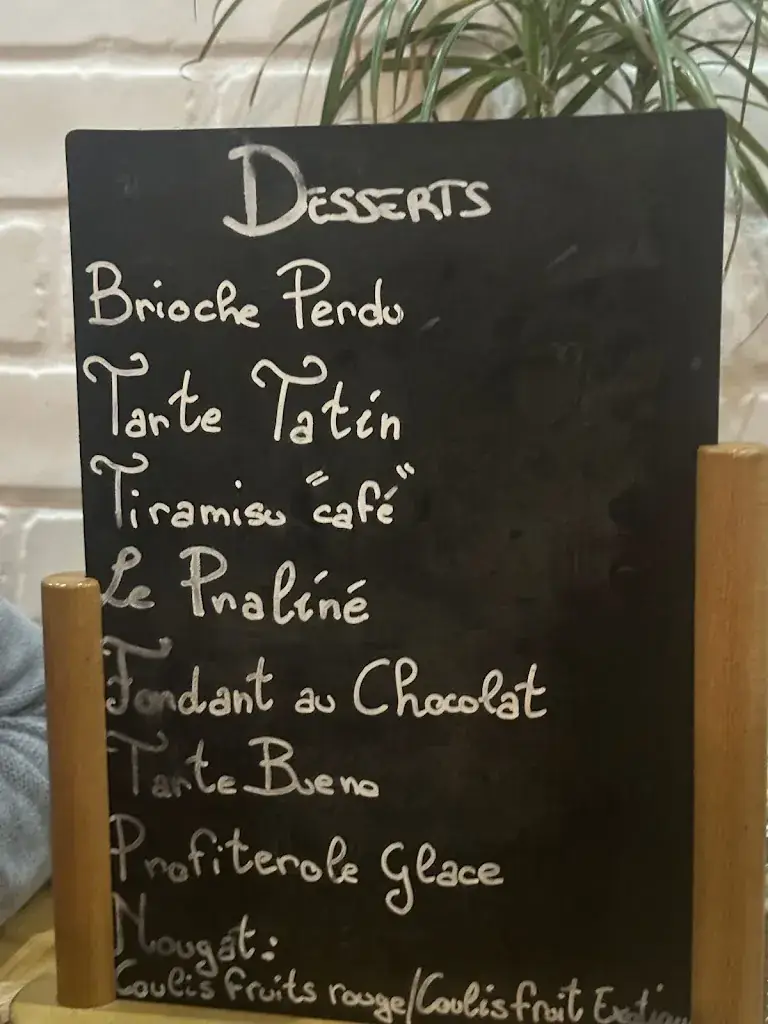 DESSERTS
Brioche Perdu
Tarte Tatin
Tiramisu "café"
Le Praliné
Fondant au Chocolat
Tarte Bueno
Profiterole Glace
Nougat:
Coulis fruits rouge/Coulis fruit